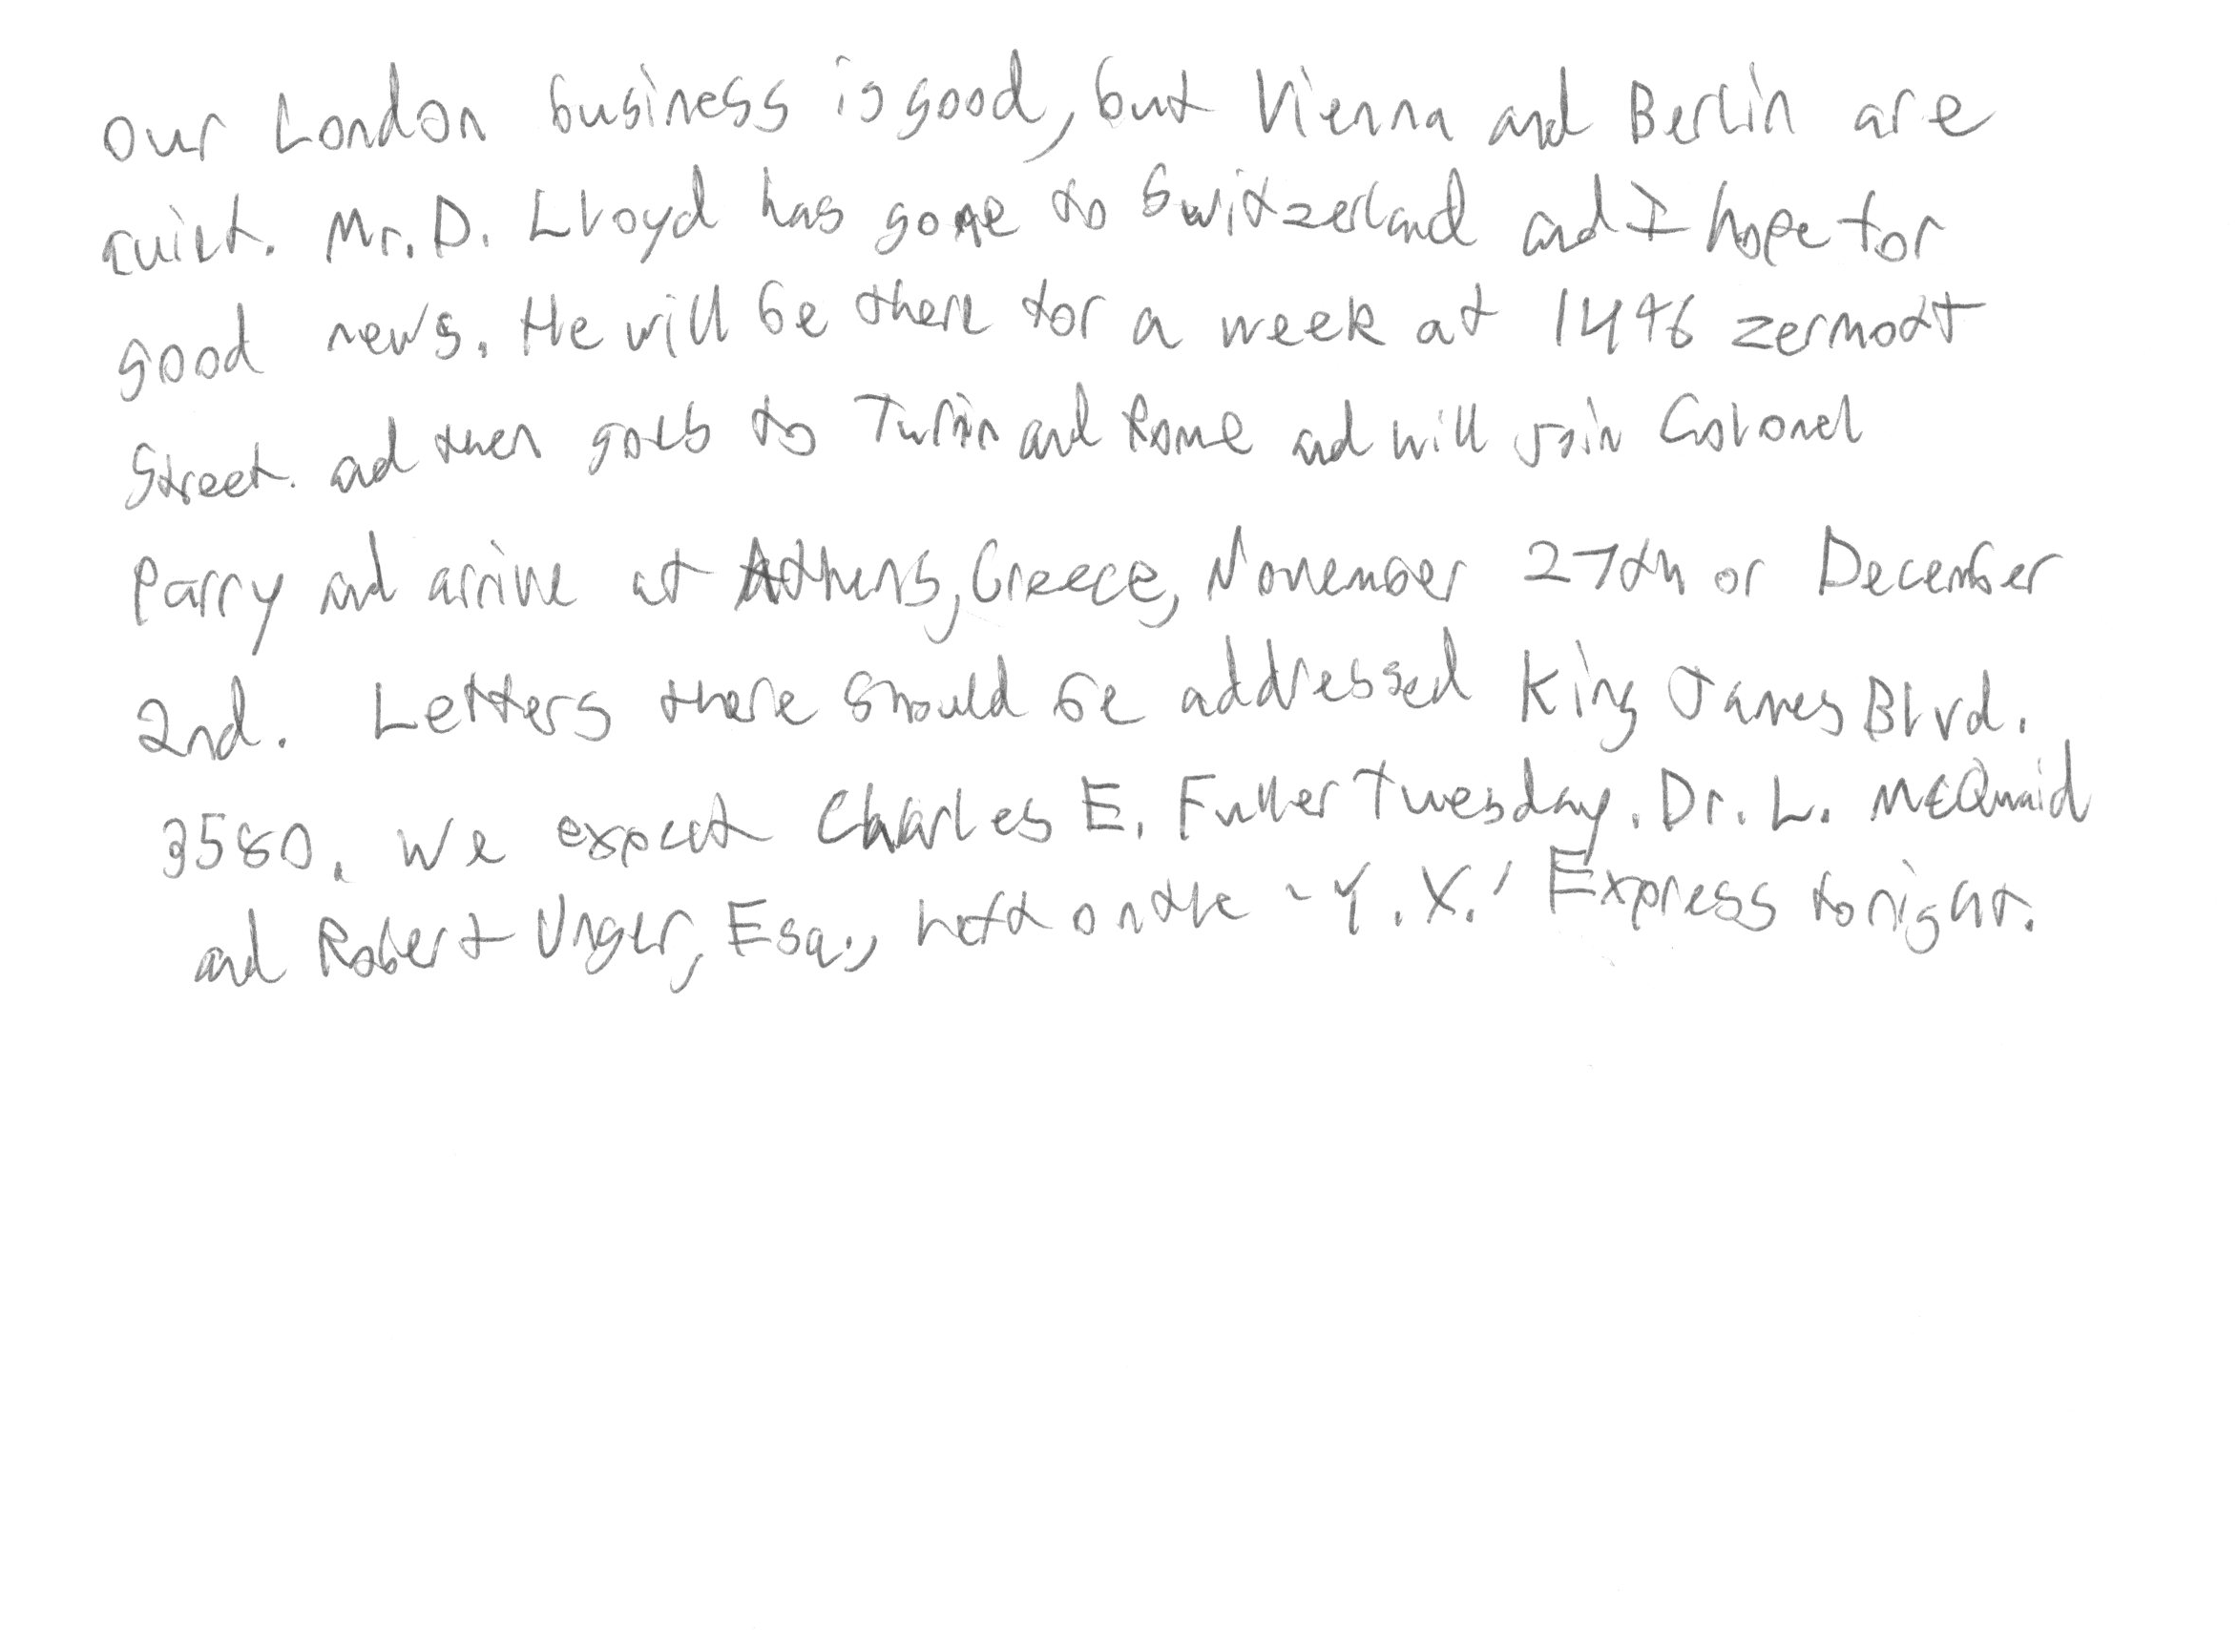 Our London business is good, but Vienna and Berlin are
quiet. Mr. D. Lloyd has gone to Switzerland and I hope for
good news. He will be there for a week at 1496 Zermott
Street. and then goes to Turin and Rome and will join Colonel
Parry and arrive at Athens, Greece, November 27th or December
2nd. Letters there should be addressed King James Blvd.
3580. We expect Charles E. Fuller Tuesday. Dr. L. McQuaid
and Robert Unger, Esq., left on the "Y. X." Express tonight.